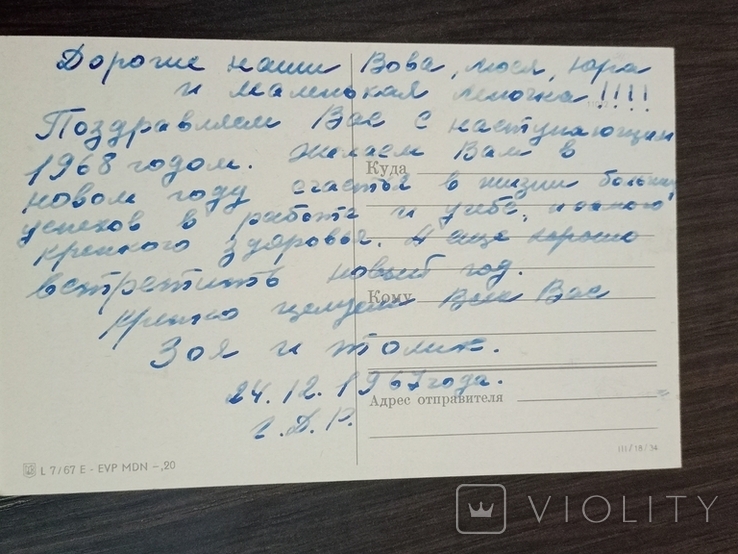 Дорогие наши Вова, Люся, Юра
и маленькая Леночка!!!!
Поздравляем Вас с наступающим
1968 годом. Желаем Вам в
Куда
новом году счастья в жизни больших
успехов в работе и учебе, и самого
крепкого здоровья. И еще хорошо
встретить новый год.
Кому
Крепко целуем Всех Вас
Зоя и Толик.
24.12.1967 года.
Адрес отправителя
г. Д. Р.
L 7/67 E - EVP MDN -,20
III/18/34
VIOLITY